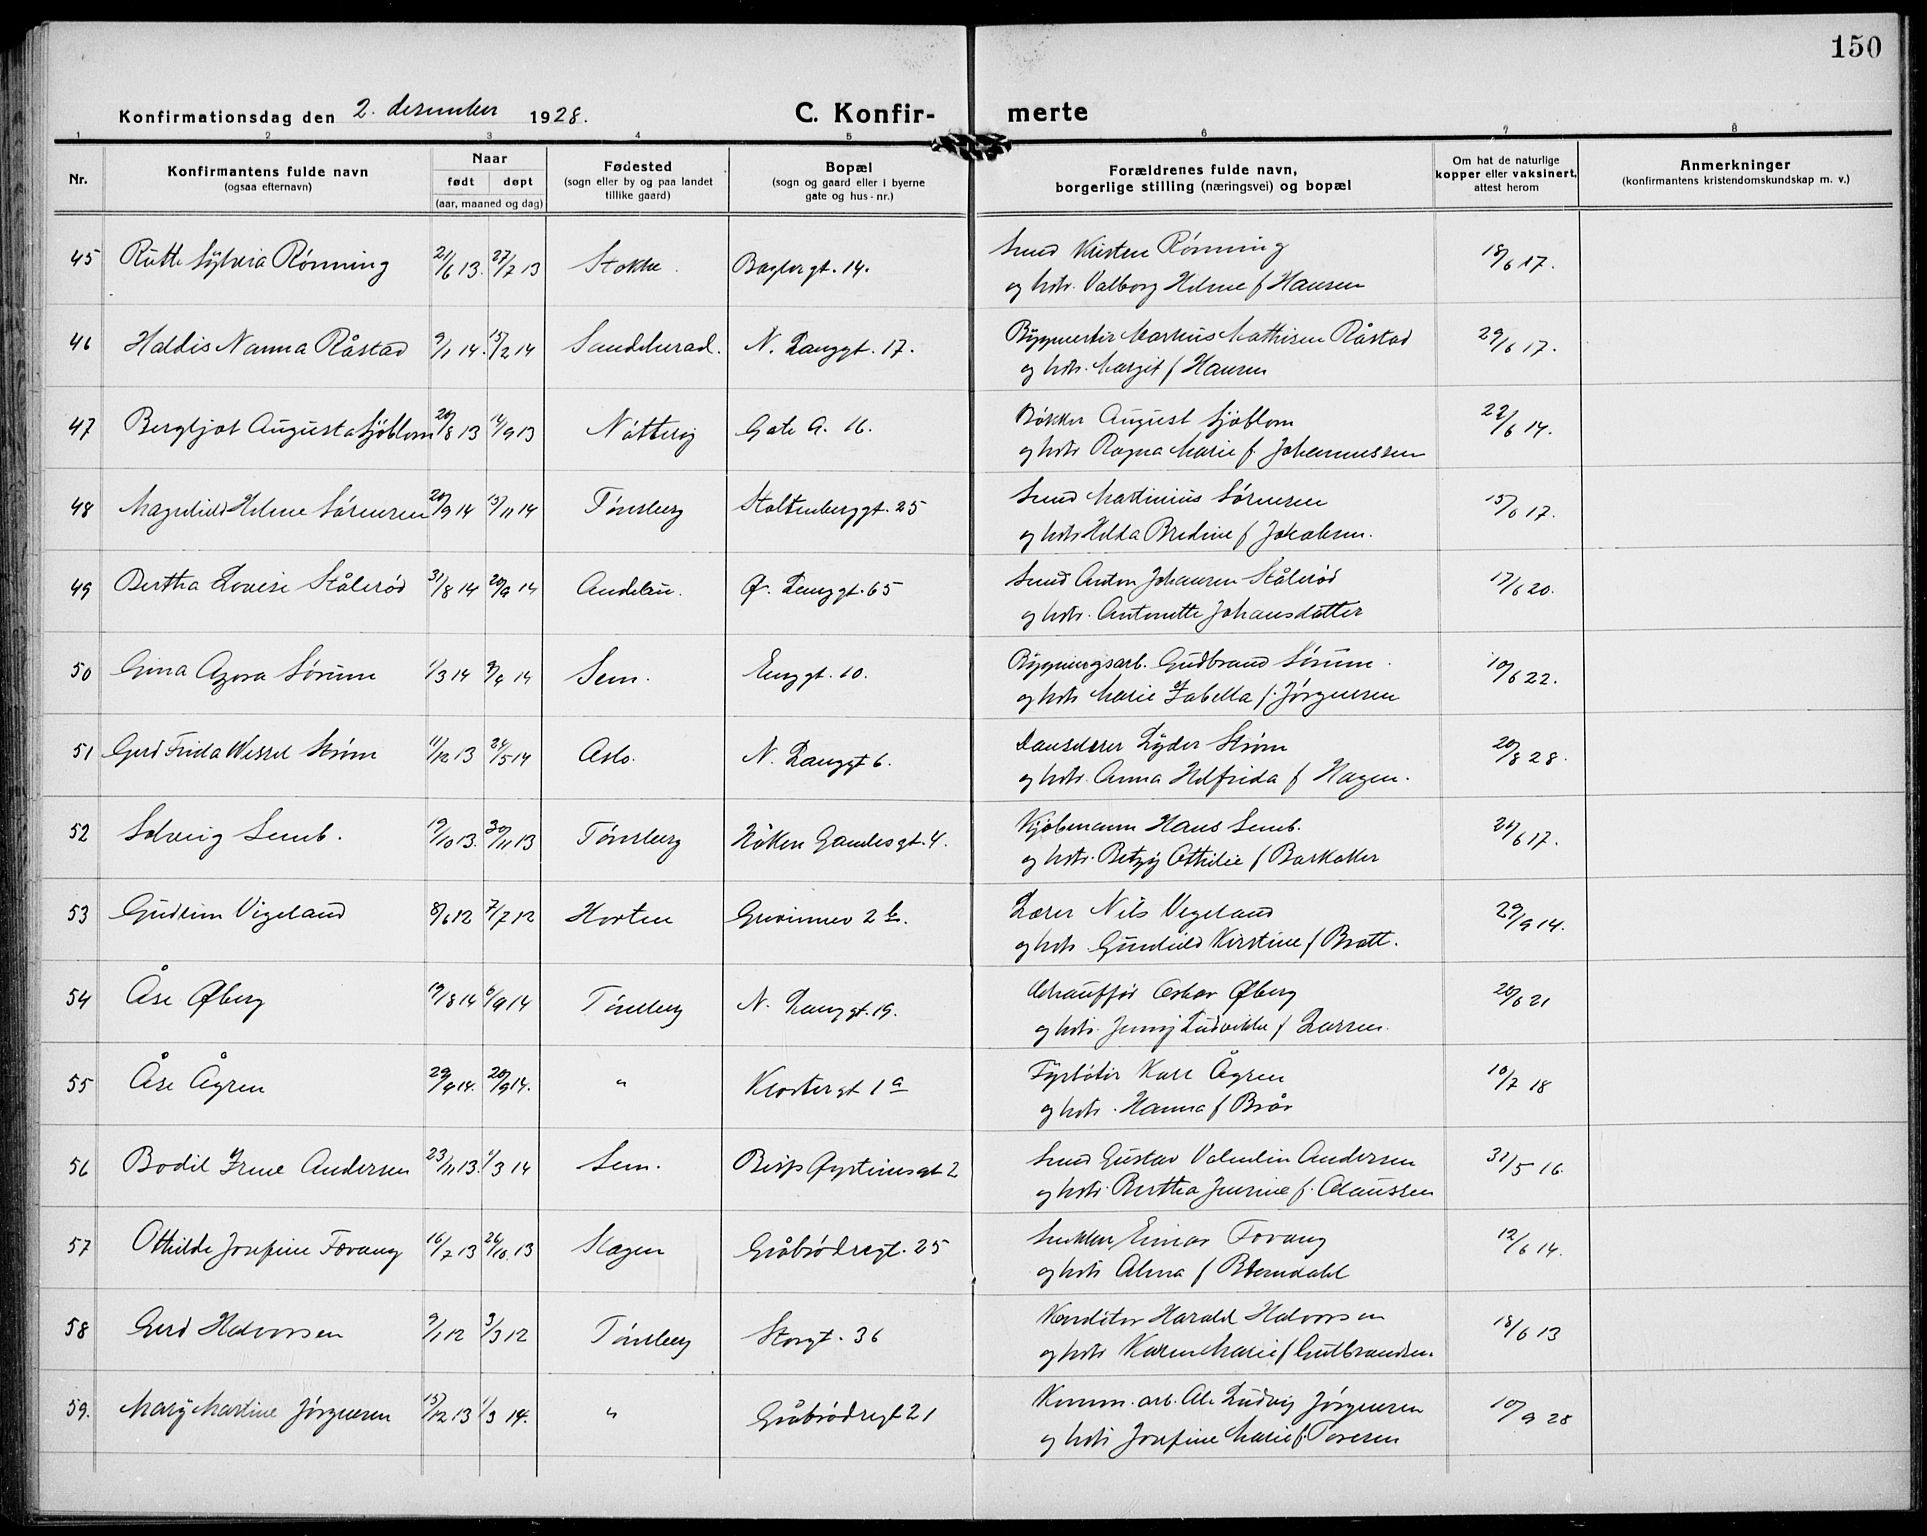 150
Konfirmationsdag den 2. desember 1928. C. Konfir- merte
1 2 3 4 5 6 7 8
Nr.
Konfirmantens fulde navn
(ogsaa efternavn)
Naar
født døpt
(aar, maaned og dag)
Fødested
(sogn eller by og paa landet
tillike gaard)
Bopæl
(sogn og gaard eller i byerne
gate og hus-nr.)
Forældrenes fulde navn,
borgerlige stilling (næringsvei) og bopæl
Om hat de naturlige
kopper eller vaksinert,
attest herom
Anmerkninger
(konfirmantens kristendomskundskap m. v.)
45 Ruth Sylvia Rønning 21/6 13. 27/7 13 Stokke. Baglergt. 14. Smed Kristen Rønning 18/6 17.
og hstr. Valborg Helene f Hansen
46 Haldis Nanna Råstad 9/1 14. 15/2 14 Sandeherad. N. Langgt. 17. Byggmester Markus Mathisen Råstad 29/6 17.
og hstr. Margit f Hansen
47 Bergljot Augusta Sjöblom 20/8 13 14/9 13 Nøtterøy Gate A. 16. Bøkker August Sjöblom 22/6 14.
og hstr Ragna Marie f. Johannessen
48 Magnhild Helene Sørensen 20/9 14 15/11 14 Tønsberg Stoltenberggt. 25 Smed Martinius Sørensen 15/6 17.
og hstr Hilda Bredine f Jakobsen.
49 Bertha Lovise Stålerød 31/8 14 20/9 14 Andebu. Ø. Langgt. 65 Smed Anton Johansen Stålerød 17/6 20.
og hstr. Antonette Johansdatter
50 Gina Azora Sørum 1/3 14 9/4 14 Sem. Enggt. 10. Bygningsarb. Gudbrand Sørum. 10/6 22.
og hstr Marie Isabella f. Jørgensen
51 Gerd Frida Wessel Strøm 11/12 13 24/5 14 Oslo. N. Langgt 6. Danselærer Lyder Strøm 20/8 28.
og hstr. Anna Helfrida f Hagen.
52 Solveig Semb. 19/10 13. 30/11 13 Tønsberg Håken Gamlesgt. 4. Kjøbmann Hans Semb. 26/6 17.
og hstr. Betzy Othilie f Barkaker
53 Gudrun Vigeland 8/6 12 7/7 12 Horten 2 b. Lærer Nils Vigeland 29/9 14.
og hstr Gunhild Kirstine f Bratt.
54 Åse Øberg 19/8 14 6/9 14 Tønsberg N. Langgt. 19. Chauffør Oskar Øberg 20/6 21
og hstr. Jenny Ludvikke f Larsen.
55 Åse Ågren 29/4 14. 20/9 14. " Klostergt 1a Fyrbøter Karl Ågren 10/7 18
og hstr. Hanna f Brår
56 Bodil Irene Andersen 23/11 13. 1/3 14 Sem. Bisp Øystinsgt 2 Smed Gustav Valentin Andersen 31/5 16.
og hstr. Bertha Jensine f. Claussen
57 Othilde Josefine Forvang 16/7 13 26/10. 13 Slagen Gråbrødregt. 25 Snekker Einar Forvang 12/6 14.
og hstr Alma f Blomdahl
58 Gerd Halvorsen 9/1 12 3/3 12 Tønsberg Storgt. 36 Konditor Harald Halvorsen 18/6 13
og hstr Karen Marie f Gulbrandsen.
59. Mary Martine Jørgensen 15/12 13 1/3 14. " Gråbrødregt 21 Komm. arb. Ole Ludvig Jørgensen 10/9 28
og hstr Josefine Marie f. Toresen